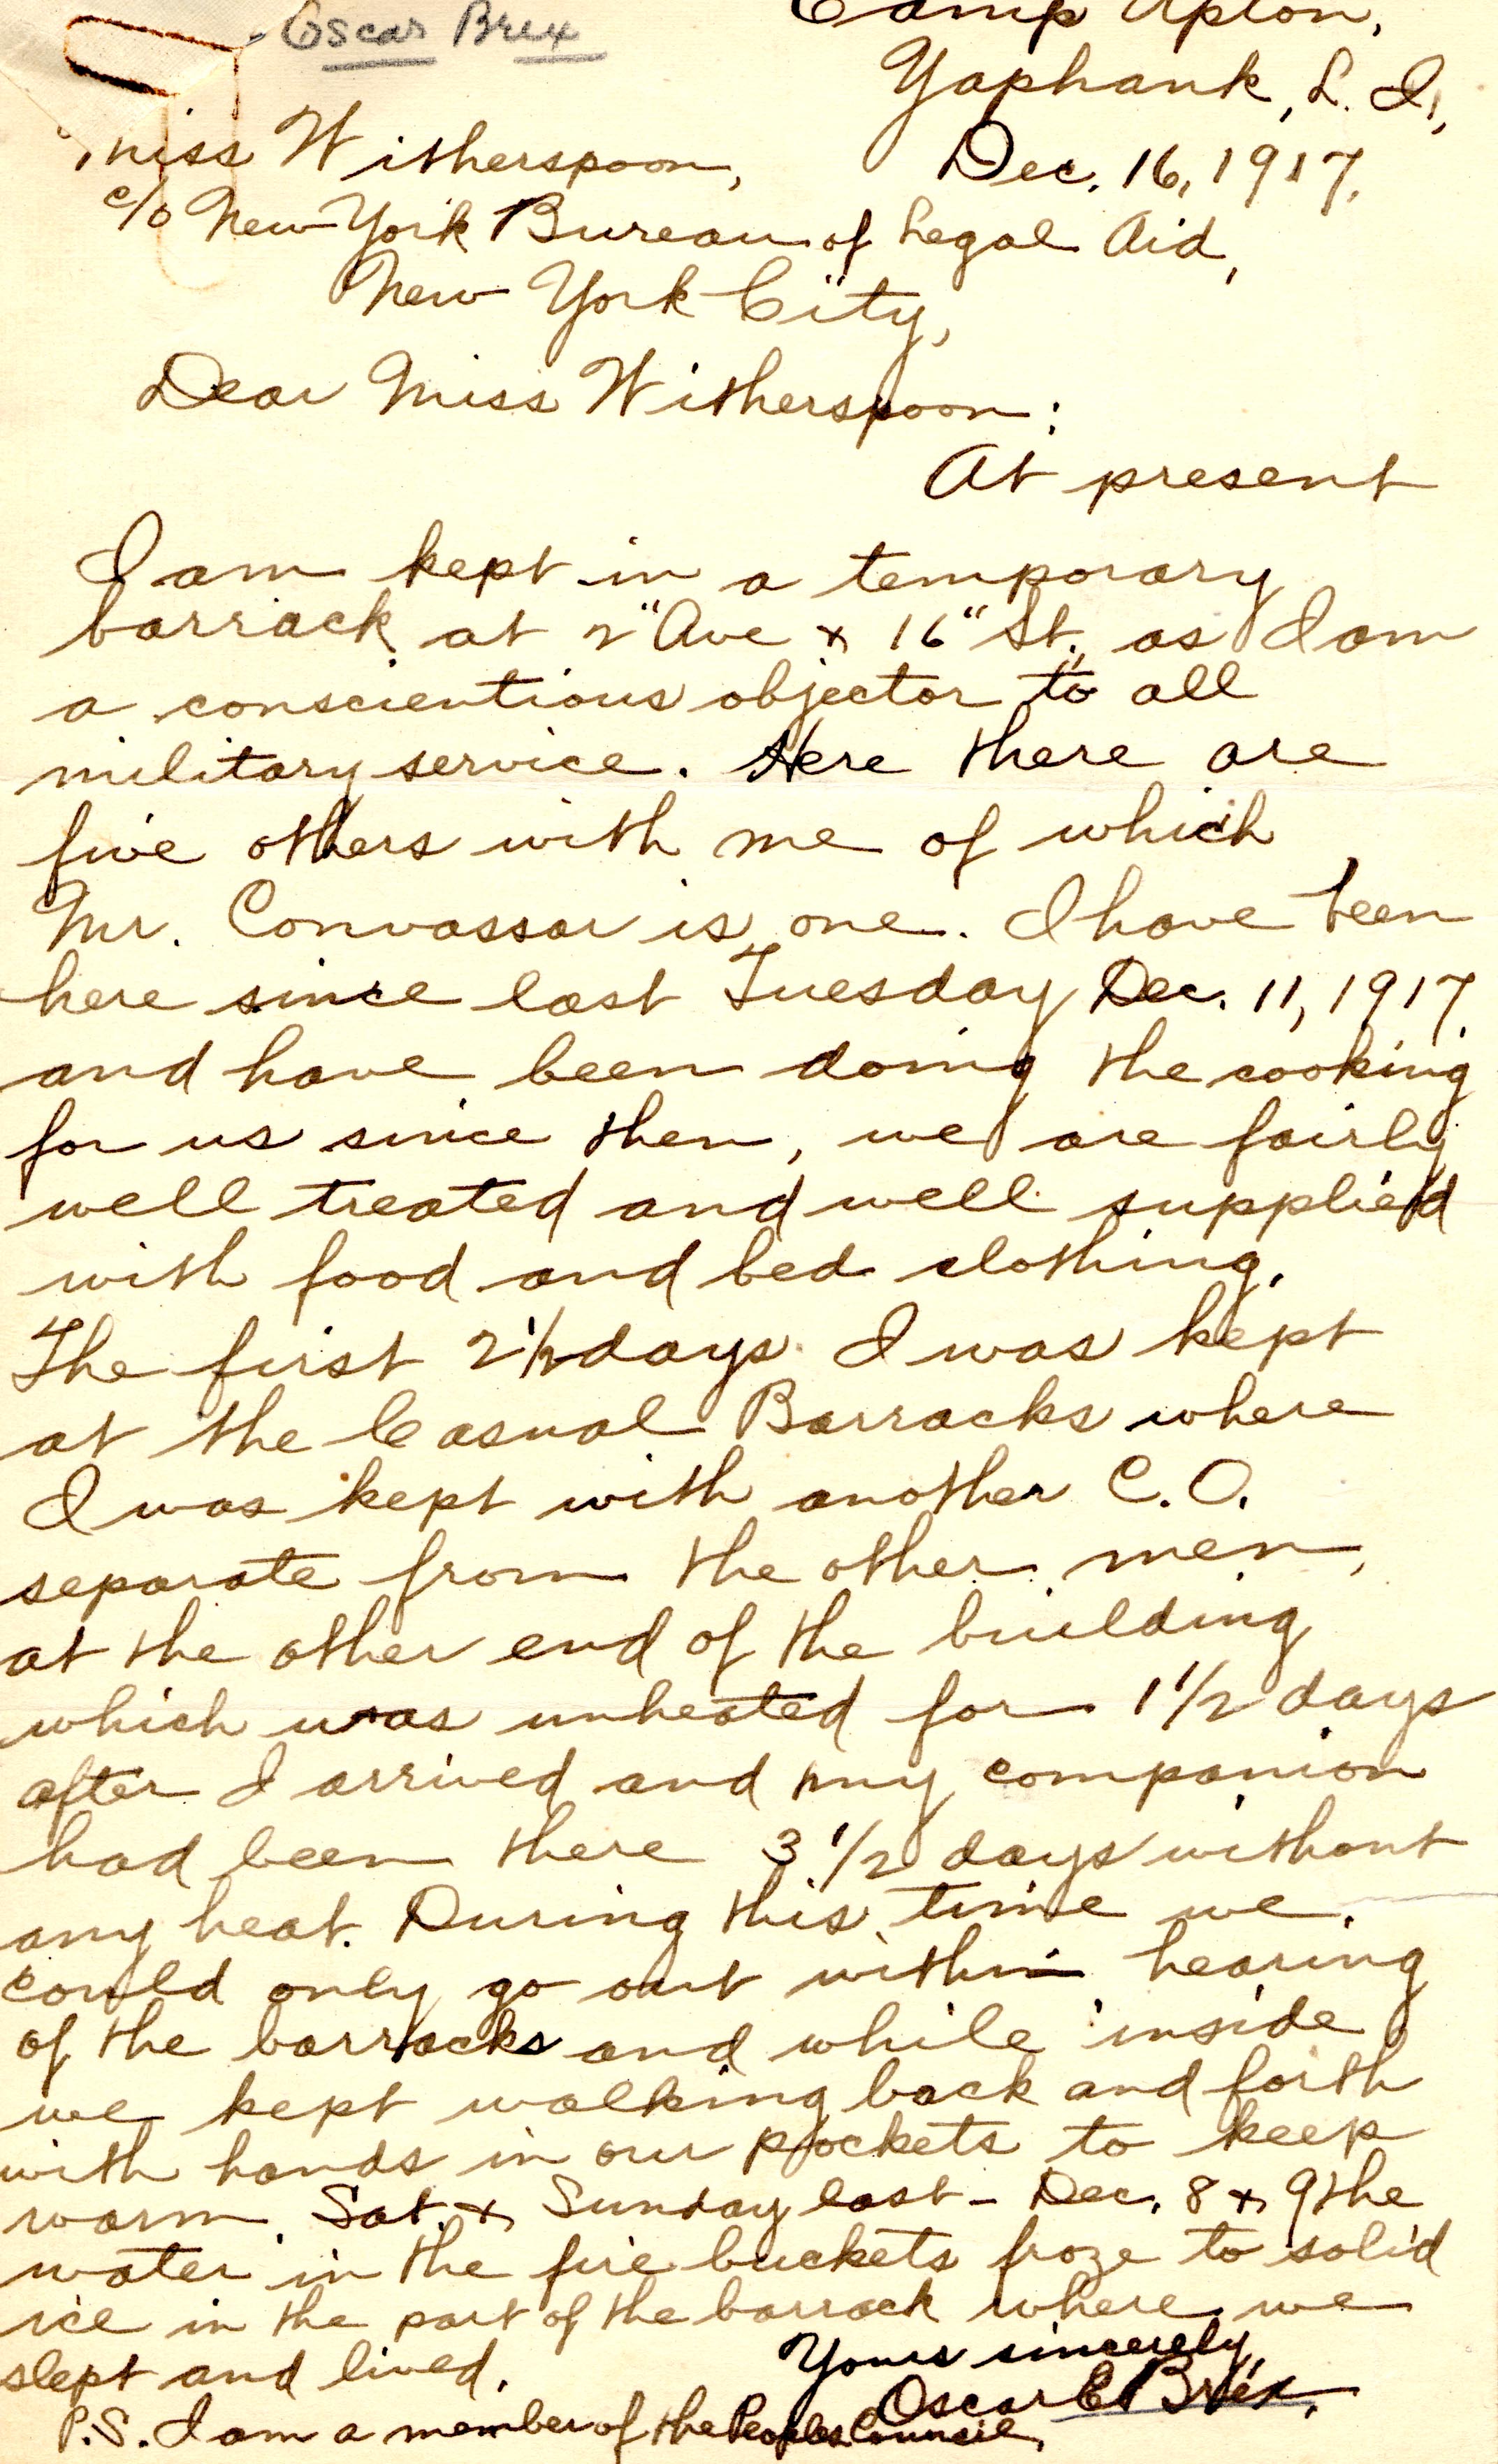 Oscar Brex
Camp Upton,
Yaphank, L. I.,
Dec. 16, 1917.
Miss Witherspoon,
c/o New York Bureau of Legal Aid,
New York City,
Dear Miss Witherspoon:
At present
I am kept in a temporary
barrack at 2" Ave + 16" St., as I am
a conscientious objector to all
military service. Here there are
five others with me of which
Mr. Convassar is one. I have been
here since last Tuesday Dec. 11, 1917
and have been doing the cooking
for us since then, we are fairly
well treated and well supplied
with food and bed clothing.
The first 2 1/2 days I was kept
at the Casual Barracks where
I was kept with another C.O.
separate from the other men,
at the other end of the building
which was unheated for 1 1/2 days
after I arrived and my companion
had been there 3 1/2 days without
any heat. During this time we
could only go out within hearing
of the barracks and while inside
we kept walking back and forth
with hands in our pockets to keep
warm. Sat. + Sunday last - Dec. 8 + 9 the
water in the fire buckets froze to solid
ice in the part of the barrack where we
slept and lived.
Yours sincerely,
Oscar E. Brex.
P.S. I am a member of the Peoples Council.